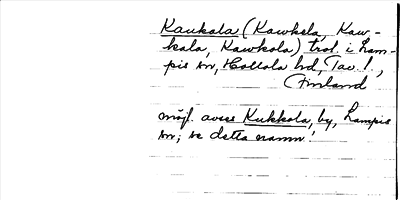 Kaukola (Kawkela, Kaw-
kala, Kawkola) trol. i Lam-
pis sn, Hollola hd, Tav. l.,
(Finland
möjl. avses Kukkola, by, Lampis
sn; se detta namn!